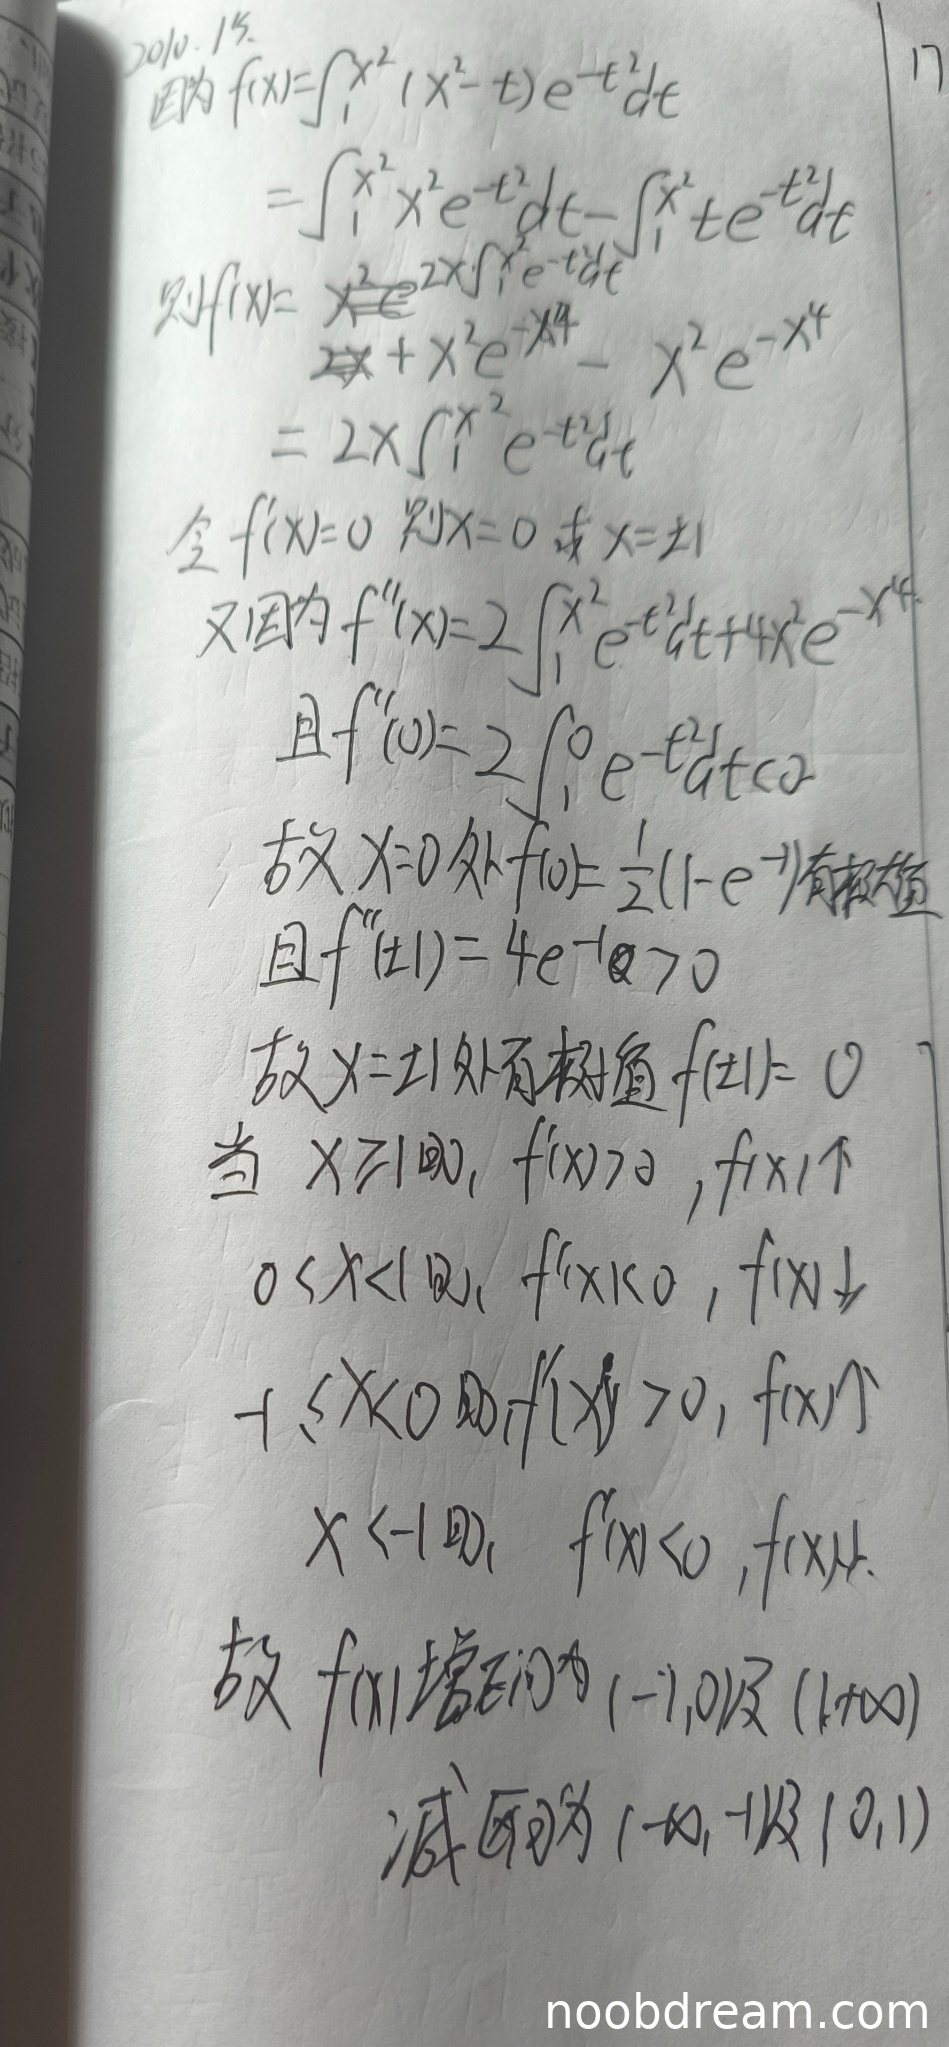 2010.15.
17
因为 f(x)=∫₁^{x²}(x²-t)e^{-t²}dt
=∫₁^{x²}x²e^{-t²}dt-∫₁^{x²}te^{-t²}dt
则f'(x)= 2x∫₁^{x²}e^{-t²}dt
+x²e^{-x⁴}-x²e^{-x⁴}
=2x∫₁^{x²}e^{-t²}dt
令f'(x)=0 则x=0或x=±1
又因为f''(x)=2∫₁^{x²}e^{-t²}dt+4x²e^{-x⁴}
且f''(0)=2∫₁^{0}e^{-t²}dt<0
故x=0处f(0)=½(1-e^{-1})有极大值
且f''(±1)=4e^{-1}>0
故x=±1处有极小值f(±1)=0
当 x≥1时, f'(x)>0, f(x)↑
0≤x<1时, f'(x)<0, f(x)↓
-1≤x<0时,f'(x)>0, f(x)↑
x<-1时, f'(x)<0, f(x)↓.
故f(x)增区间为(-1,0)及(1,+∞)
减区间为(-∞,-1)及(0,1)
noobdream.com